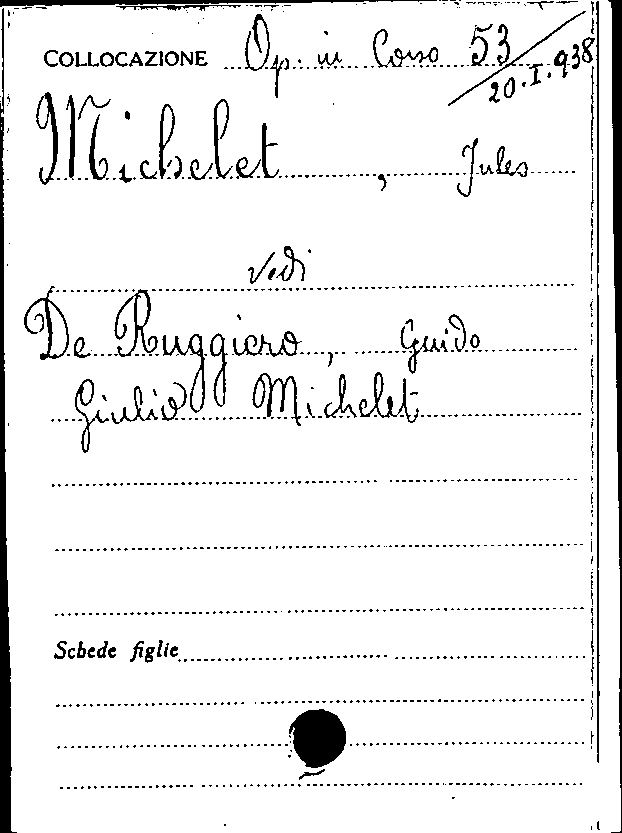 COLLOCAZIONE Op. in Corso 53
20.I.938
Michelet, Jules
Vedi
De Ruggiero, Guido
Giulio Michelet
Schede figlie